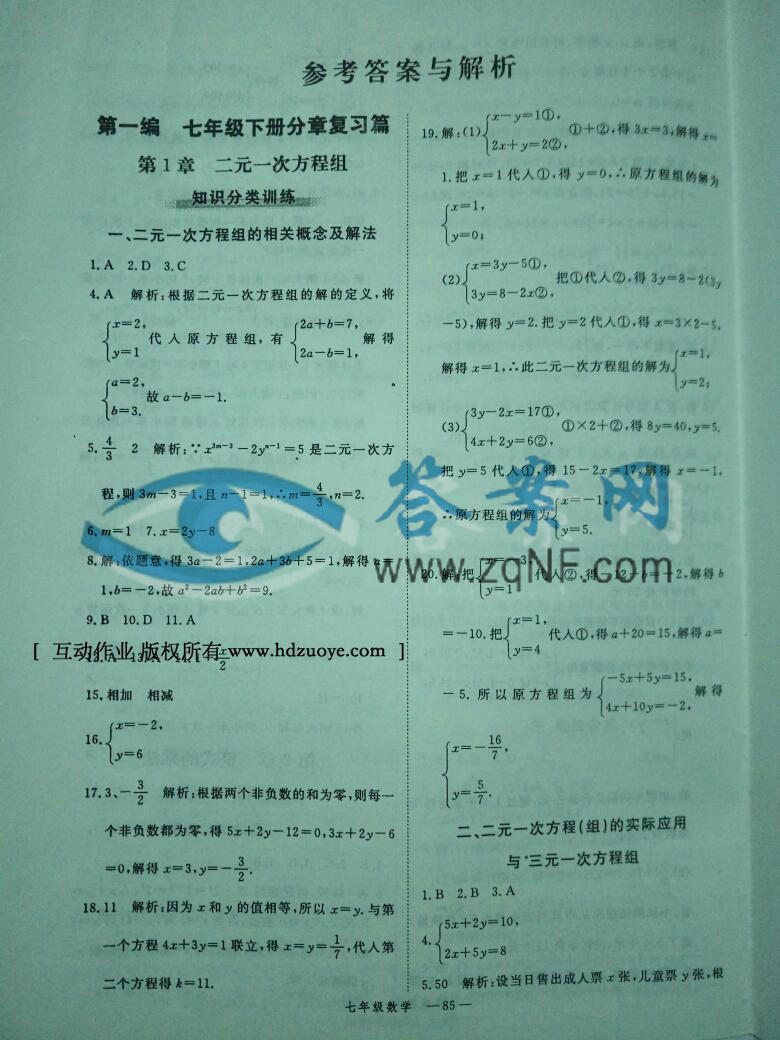 参考答案与解析
第一编 七年级下册分章复习篇
第1章 二元一次方程组
知识分类训练
一、二元一次方程组的相关概念及解法
1.A 2.D 3.C
4.A 解析:根据二元一次方程组的解的定义,将
{x=2, y=1 代人原方程组,有 {2a+b=7, 2a-b=1, 解得
{a=2, b=3. 故a-b=-1.
5. 4/3 2 解析:∵x^{3m-3}-2y^{n-1}=5是二元一次方
程,则3m-3=1,且n-1=1,∴m=4/3,n=2.
6.m=1 7.x=2y-8
8.解:依题意,得3a-2=1,2a+3b+5=1,解得a=
1,b=-2,故a²-2ab+b²=9.
9.B 10.D 11.A
[ 互动作业 版权所有 www.hdzuoye.com ]
15.相加 相减
16. {x=-2, y=6
17.3、-3/2 解析:根据两个非负数的和为零,则每一
个非负数都为零,得5x+2y-12=0,3x+2y-6
=0,解得x=3,y=-3/2.
18.11 解析:因为x和y的值相等,所以x=y.与第
一个方程4x+3y=1联立,得x=y=1/7,代人第
二个方程得k=11.
19.解:(1) {x-y=1①, 2x+y=2②, ①+②,得3x=3,解得x=
1.把x=1代人①,得y=0,∴原方程组的解为
{x=1, y=0;
(2) {x=3y-5①, 3y=8-2x②, 把①代人②,得3y=8-2(3y
-5),解得y=2.把y=2代人①,得x=3×2-5,
解得x=1,∴此二元一次方程组的解为 {x=1, y=2;
(3) {3y-2x=17①, 4x+2y=6②, ①×2+②,得8y=40,y=5.
把y=5代人①,得15-2x=17,解得x=-1,
∴原方程组的解为 {x=-1, y=5.
答案网
www.zqNF.com
20.解:把 {x=-3, y=1 代人②,得-12-b=-2,解得b
=-10.把 {x=1, y=4 代人①,得a+20=15,解得a=
-5.所以原方程组为 {-5x+5y=15, 4x+10y=-2, 解得
{x=-16/7, y=5/7.
二、二元一次方程(组)的实际应用
与*三元一次方程组
1.B 2.B 3.A
4. {5x+2y=10, 2x+5y=8
5.50 解析:设当日售出成人票x张,儿童票y张,根
七年级数学 —85—